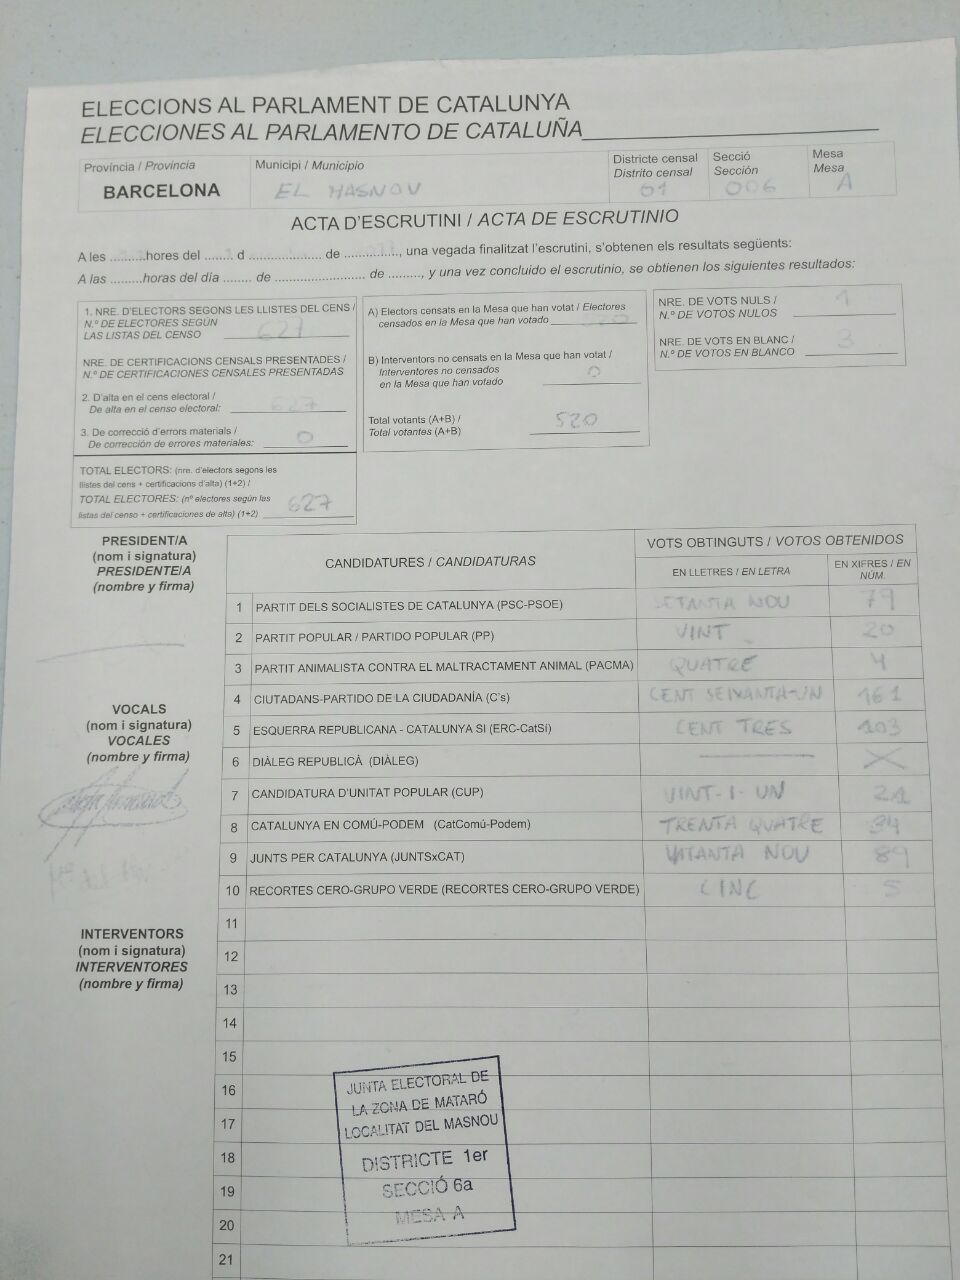 ELECCIONS AL PARLAMENT DE CATALUNYA
ELECCIONES AL PARLAMENTO DE CATALUÑA
Província / Provincia
BARCELONA
Municipi / Municipio
EL MASNOU
Districte censal
Distrito censal
01
Secció
Sección
006
Mesa
Mesa
A
ACTA D'ESCRUTINI / ACTA DE ESCRUTINIO
A les .........hores del ....... d .................... de ............, una vegada finalitzat l'escrutini, s'obtenen els resultats següents:
A las .........horas del día ....... de ......................... de ........, y una vez concluido el escrutinio, se obtienen los siguientes resultados:
1. NRE. D'ELECTORS SEGONS LES LLISTES DEL CENS /
N.º DE ELECTORES SEGÚN
LAS LISTAS DEL CENSO 627
NRE. DE CERTIFICACIONS CENSALS PRESENTADES /
N.º DE CERTIFICACIONES CENSALES PRESENTADAS
2. D'alta en el cens electoral /
De alta en el censo electoral: 627
3. De correcció d'errors materials /
De corrección de errores materiales: 0
TOTAL ELECTORS: (nre. d'electors segons les
llistes del cens + certificacions d'alta) (1+2) /
TOTAL ELECTORES: (nº electores según las
listas del censo + certificaciones de alta) (1+2) 627
A) Electors censats en la Mesa que han votat / Electores
censados en la Mesa que han votado 520
B) Interventors no censats en la Mesa que han votat /
Interventores no censados
en la Mesa que han votado 0
Total votants (A+B) /
Total votantes (A+B) 520
NRE. DE VOTS NULS /
N.º DE VOTOS NULOS 1
NRE. DE VOTS EN BLANC /
N.º DE VOTOS EN BLANCO 3
PRESIDENT/A
(nom i signatura)
PRESIDENTE/A
(nombre y firma)
VOCALS
(nom i signatura)
VOCALES
(nombre y firma)
INTERVENTORS
(nom i signatura)
INTERVENTORES
(nombre y firma)
CANDIDATURES / CANDIDATURAS
VOTS OBTINGUTS / VOTOS OBTENIDOS
EN LLETRES / EN LETRA
EN XIFRES / EN NÚM.
1 PARTIT DELS SOCIALISTES DE CATALUNYA (PSC-PSOE) SETANTA NOU 79
2 PARTIT POPULAR / PARTIDO POPULAR (PP) VINT 20
3 PARTIT ANIMALISTA CONTRA EL MALTRACTAMENT ANIMAL (PACMA) QUATRE 4
4 CIUTADANS-PARTIDO DE LA CIUDADANÍA (C's) CENT SEIXANTA-UN 161
5 ESQUERRA REPUBLICANA - CATALUNYA SI (ERC-CatSí) CENT TRES 103
6 DIÀLEG REPUBLICÀ (DIÀLEG)
7 CANDIDATURA D'UNITAT POPULAR (CUP) VINT-I-UN 21
8 CATALUNYA EN COMÚ-PODEM (CatComú-Podem) TRENTA QUATRE 34
9 JUNTS PER CATALUNYA (JUNTSxCAT) VUITANTA NOU 89
10 RECORTES CERO-GRUPO VERDE (RECORTES CERO-GRUPO VERDE) CINC 5
11
12
13
14
15
16
17
18
19
20
21
JUNTA ELECTORAL DE
LA ZONA DE MATARÓ
LOCALITAT DEL MASNOU
DISTRICTE 1er
SECCIÓ 6a
MESA A